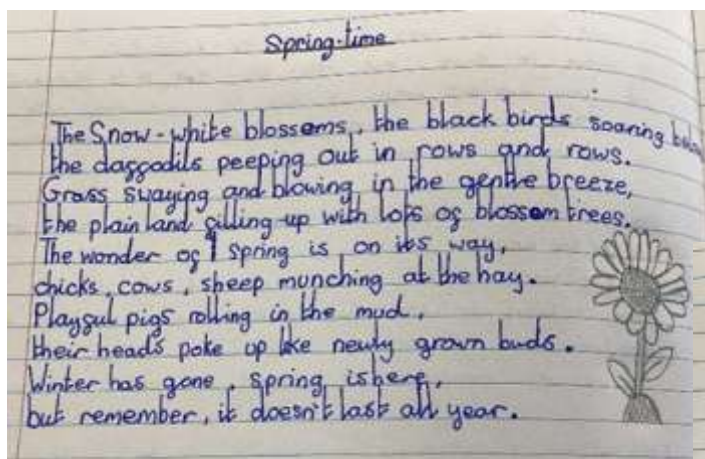 Spring-time
The Snow-white blossoms, the black birds soaring below
the daffodils peeping out in rows and rows.
Grass swaying and blowing in the gentle breeze,
the plain land filling up with lots of blossom trees.
The wonder of spring is on its way,
chicks, cows, sheep munching at the hay.
Playful pigs rolling in the mud,
their heads poke up like newly grown buds.
Winter has gone, spring is here,
but remember, it doesn't last all year.